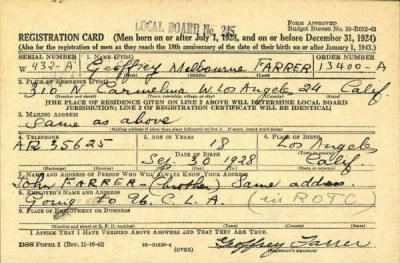 LOCAL BOARD No. 245
FORM APPROVED
REGISTRATION CARD (Men born on or after July 1, 1924, and on or before December 31, 1924)
(Also for the registration of men as they reach the 18th anniversary of the date of their birth on or after January 1, 1943.)
SERIAL NUMBER 1. NAME (Print) ORDER NUMBER
W 432-A Geoffrey Melbourne FARRER 13400-A
2. PLACE OF RESIDENCE (Print)
310 N Carmelina W. Los Angeles 24 Calif
[THE PLACE OF RESIDENCE GIVEN ON LINE 2 ABOVE WILL DETERMINE LOCAL BOARD
JURISDICTION; LINE 2 OF REGISTRATION CERTIFICATE WILL BE IDENTICAL]
3. MAILING ADDRESS
Same as above
4. TELEPHONE 5. AGE IN YEARS 6. PLACE OF BIRTH
AR 35625 18 Los Angeles
DATE OF BIRTH
Sep. 30 1928 Calif
7. NAME AND ADDRESS OF PERSON WHO WILL ALWAYS KNOW YOUR ADDRESS
John FARRER (brother) Same address
8. EMPLOYER'S NAME AND ADDRESS
Going to U. C. L. A. (in ROTC)
9. PLACE OF EMPLOYMENT OR BUSINESS
I AFFIRM THAT I HAVE VERIFIED ABOVE ANSWERS AND THAT THEY ARE TRUE.
DSS Form 1 (Rev. 11-16-42) (OVER) Geoffrey Farrer